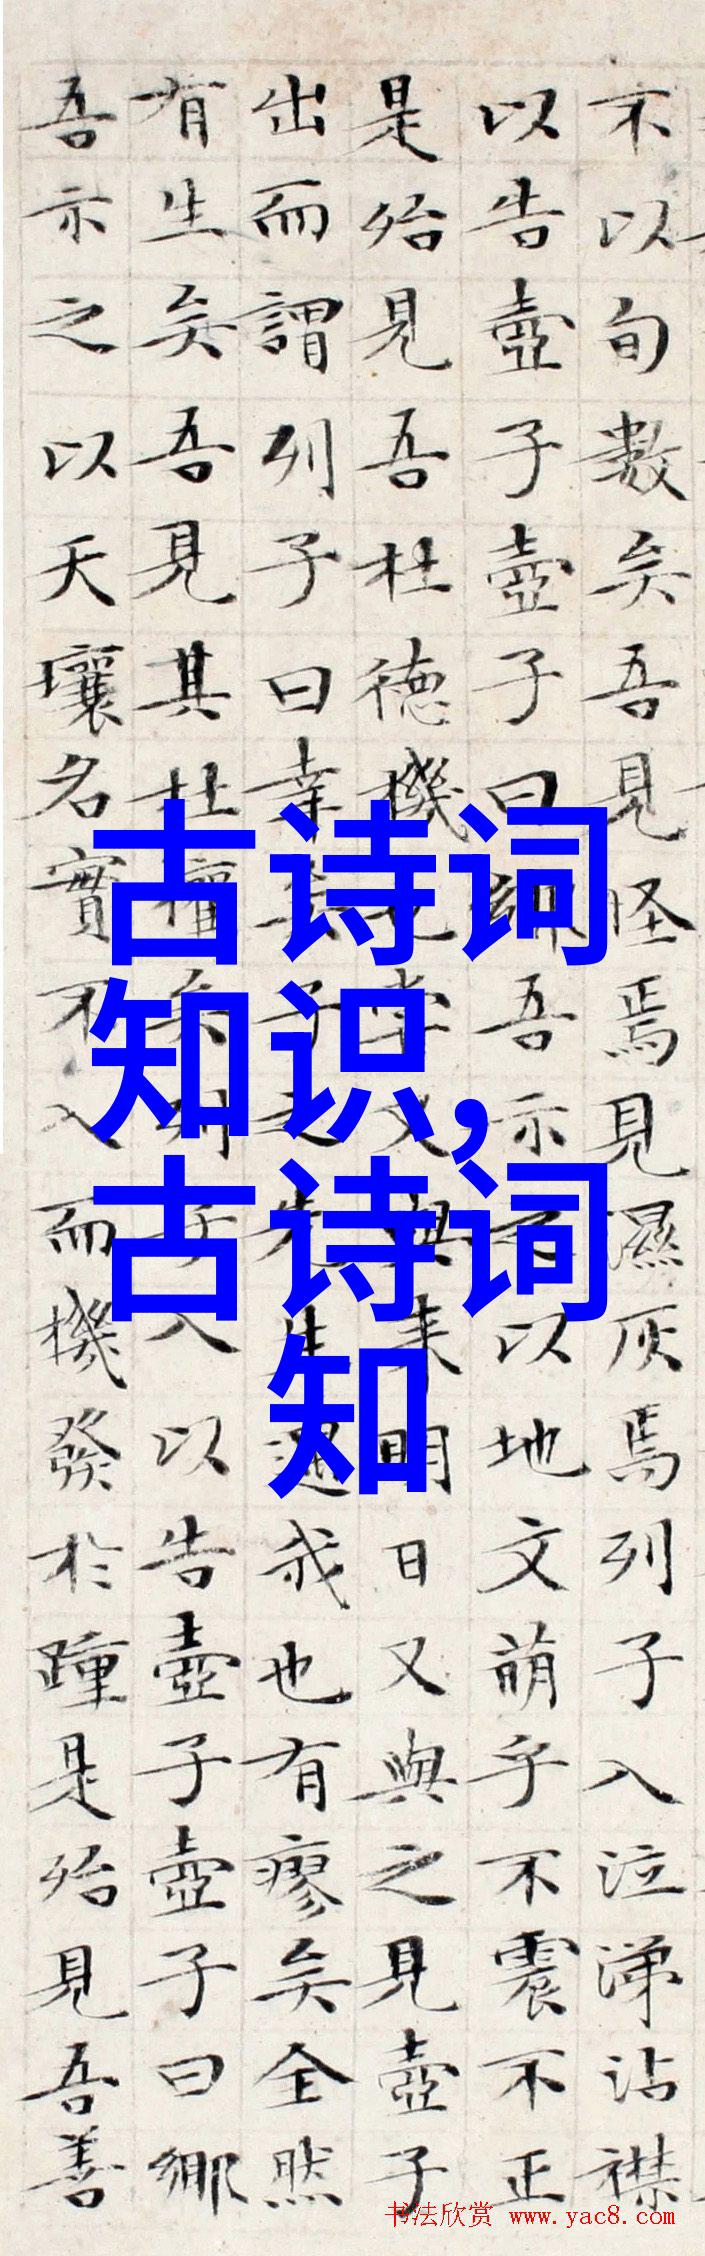 不以旬數矣吾見怪焉見濕灰焉列子入泣涕沾襟
以告壺子壺子曰鄉吾示之以地文萌乎不震不正
是殆見吾杜德機也嘗又與來明日又與之見壺子
出而謂列子曰幸矣子之先生遇我也有瘳矣全然
有生矣吾見其杜權矣列子入以告壺子壺子曰鄉
吾示之以天壤名實不入而機發於踵是殆見吾善
古诗词
知识,
古诗词
知
书法欣赏 www.yac8.com